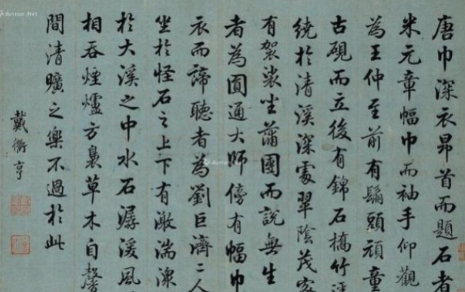 唐巾深衣昂首而題石者
米元章幅巾而袖手仰觀
為王仲至前有鬅頭頑童
古硯而立後有錦石橋竹逕
繞於清溪深處翠陰茂密
有袈裟坐蒲團而說無生
者為圓通大師傍有幅巾
衣而諦聽者為劉巨濟二人
坐於怪石之上下有激湍潨
於大溪之中水石潺湲風
相吞煙爐方裊草木自馨
間清曠之樂不過於此
戴衢亨